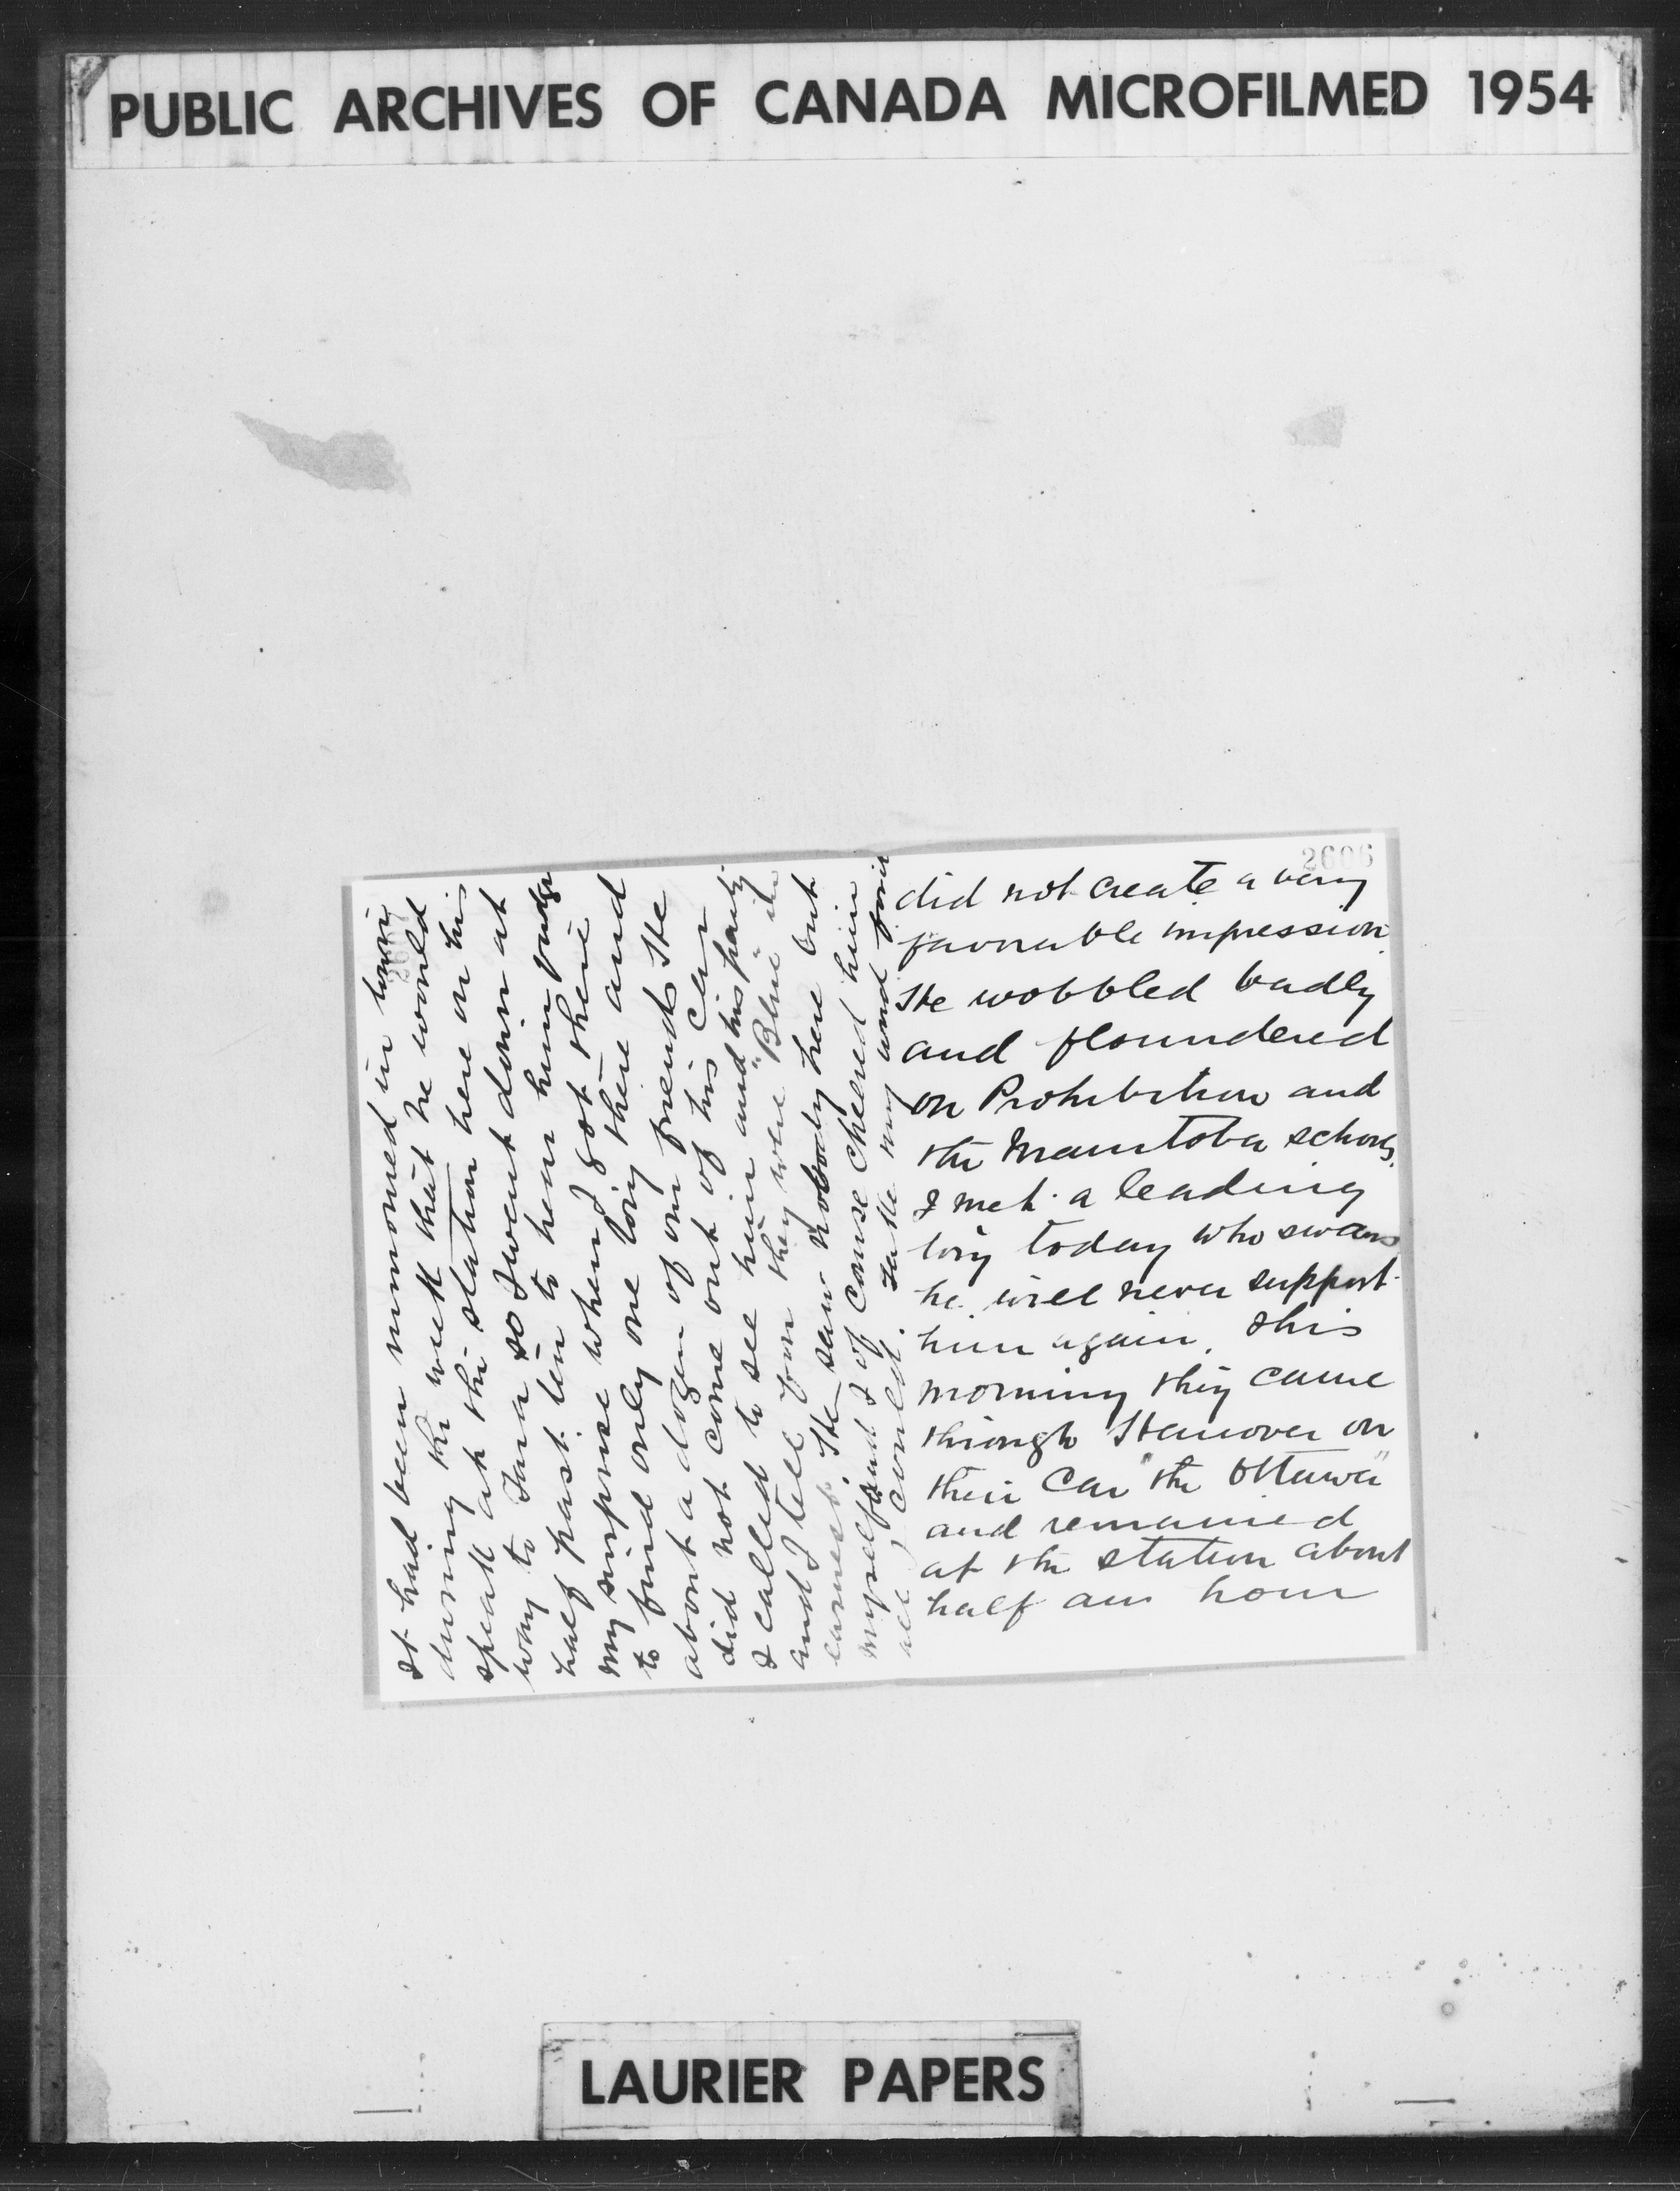 PUBLIC ARCHIVES OF CANADA MICROFILMED 1954
2606
did not create a very
favourable impression
He wobbled badly
and floundered
on Prohibition and
the Manitoba schools.
I met a leading
tory today who swears
he will never support
him again. This
morning they came
through Hanover on
their Car "the Ottawa"
and remained
at the station about
half an hour
It had been rumoured in town
during the week that he would
speak at the station here on his
way to Tara so I went down at
half past ten to hear him
my surprise when I got there
to find only one tory there and
about a dozen of our friends He
did not come out of his Car
I called to see him and his party
and I tell you they were "Blue" in
earnest. He saw nobody here but
myself and I of course cheered him
all I could. Take my word for it
LAURIER PAPERS